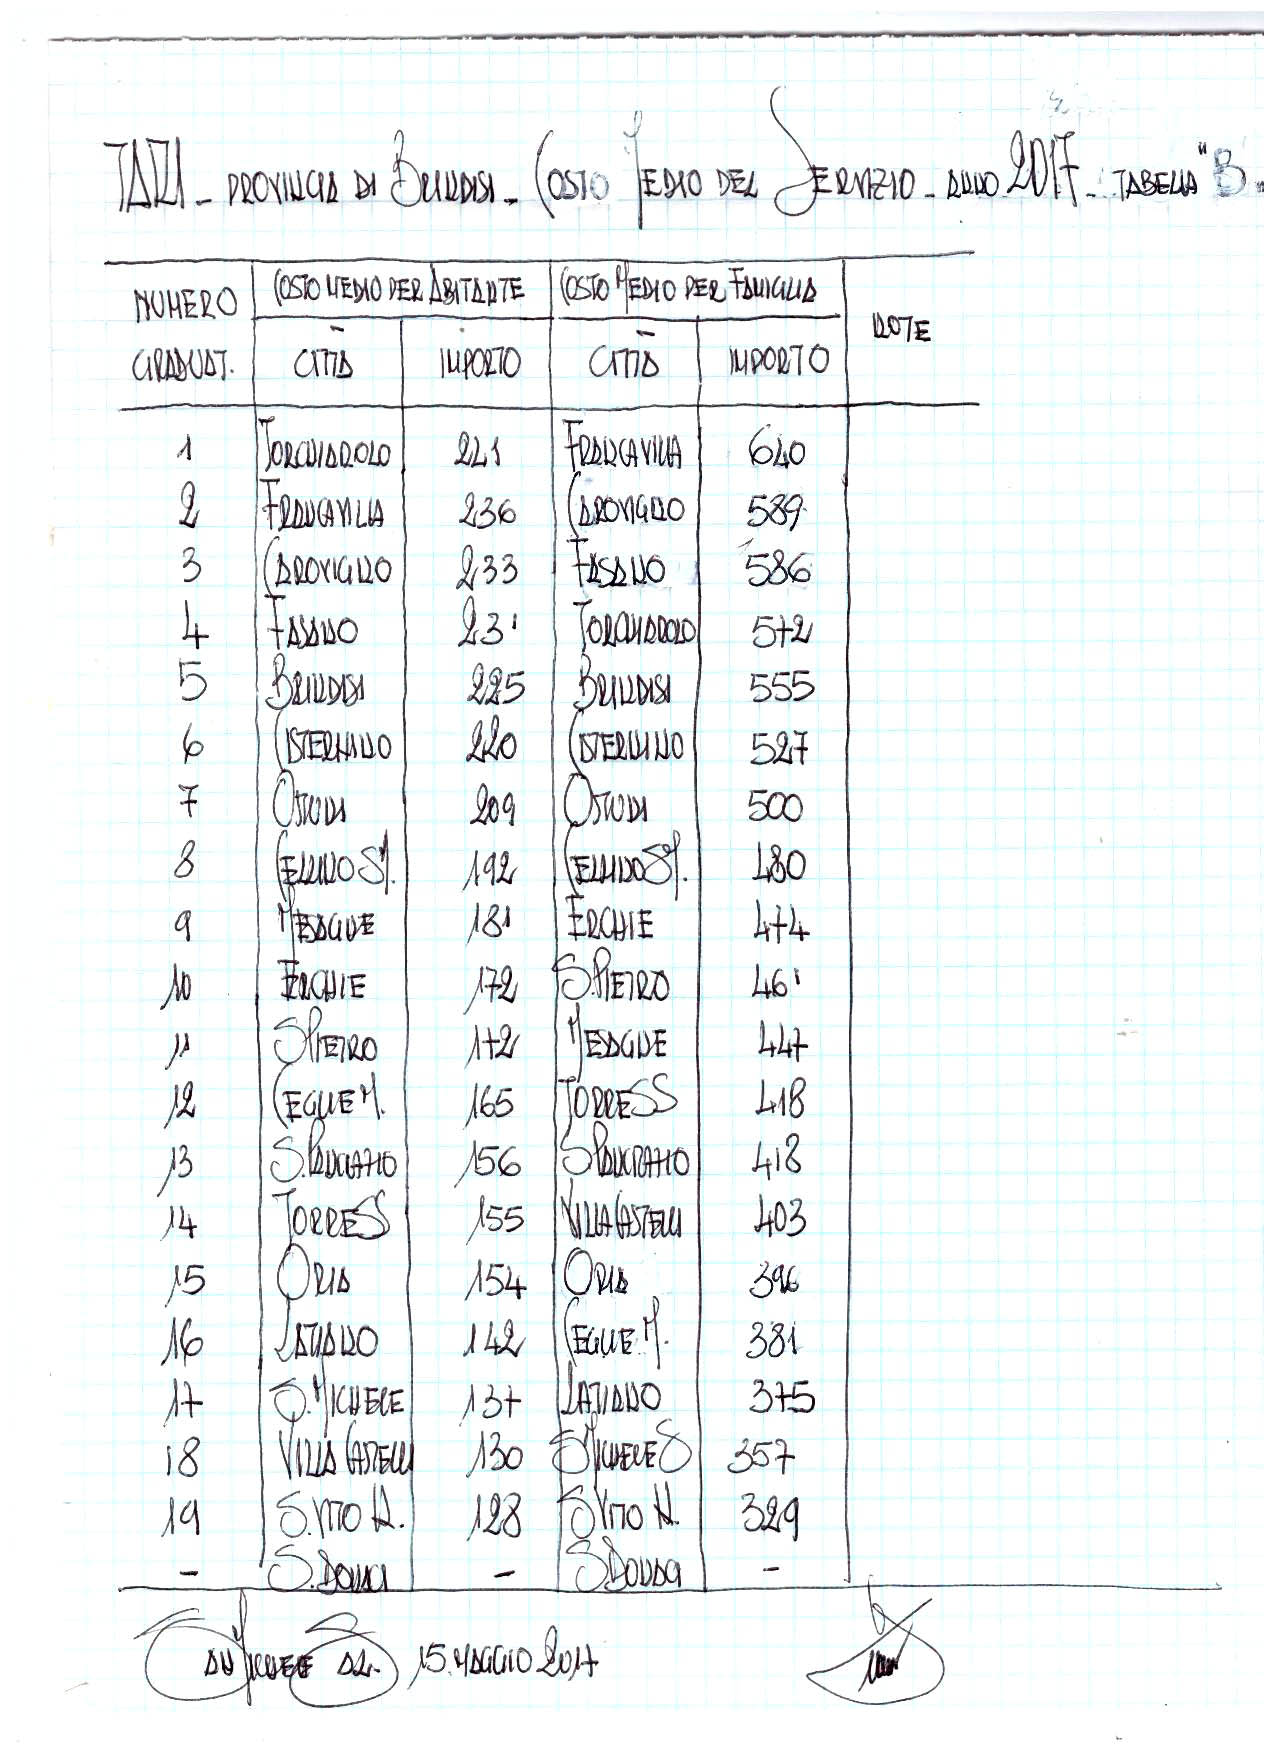 TARI - PROVINCIA DI BRINDISI - COSTO MEDIO DEL SERVIZIO - ANNO 2017 - TABELLA "B"
NUMERO GRADUAT. COSTO MEDIO PER ABITANTE COSTO MEDIO PER FAMIGLIA NOTE
CITTÀ IMPORTO CITTÀ IMPORTO
1 TORCHIAROLO 241 FRANCAVILLA 640
2 FRANCAVILLA 236 CAROVIGNO 589
3 CAROVIGNO 233 FASANO 586
4 FASANO 231 TORCHIAROLO 572
5 BRINDISI 225 BRINDISI 555
6 CISTERNINO 220 CISTERNINO 527
7 OSTUNI 209 OSTUNI 500
8 CELLINO S.M. 192 CELLINO S.M. 480
9 MESAGNE 181 ERCHIE 474
10 ERCHIE 172 S. PIETRO 461
11 S. PIETRO 172 MESAGNE 447
12 CEGLIE M. 165 TORRE S S 418
13 S. PANCRAZIO 156 S. PANCRAZIO 418
14 TORRE S S 155 VILLA CASTELLI 403
15 ORIA 154 ORIA 396
16 LATIANO 142 CEGLIE M. 381
17 S. MICHELE 137 LATIANO 375
18 VILLA CASTELLI 130 S. MICHELE S 357
19 S. VITO N. 128 S. VITO N. 329
- S. DONACI - S. DONACI -
SAN MICHELE SAL. 15. MAGGIO 2017